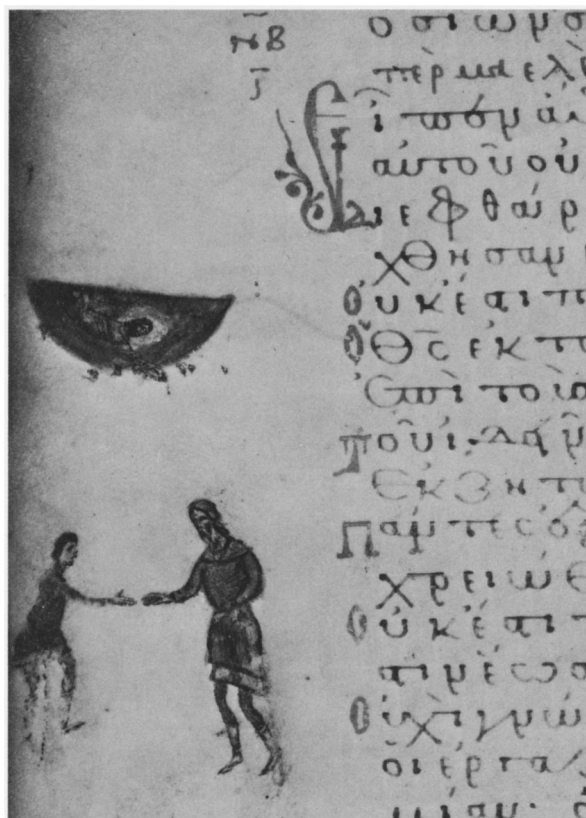 ν̅β
οσίων σ
πὲρ μαελὲ
Εἶπεν ἄ
αυτοῦ οὐ
Διεφθάρ
χθησαν
Οὐκ ἔστι π
Ὁ Θ̅ς̅ ἐκ τ
Ἐπὶ τοὺ
Τοῦ ἰδεῖν
Ἐκζητ
Πάντες
χρειώθ
Οὐκ ἔστι
στιν ἕως
Οὐχὶ γνώ
οἱ ἐργα